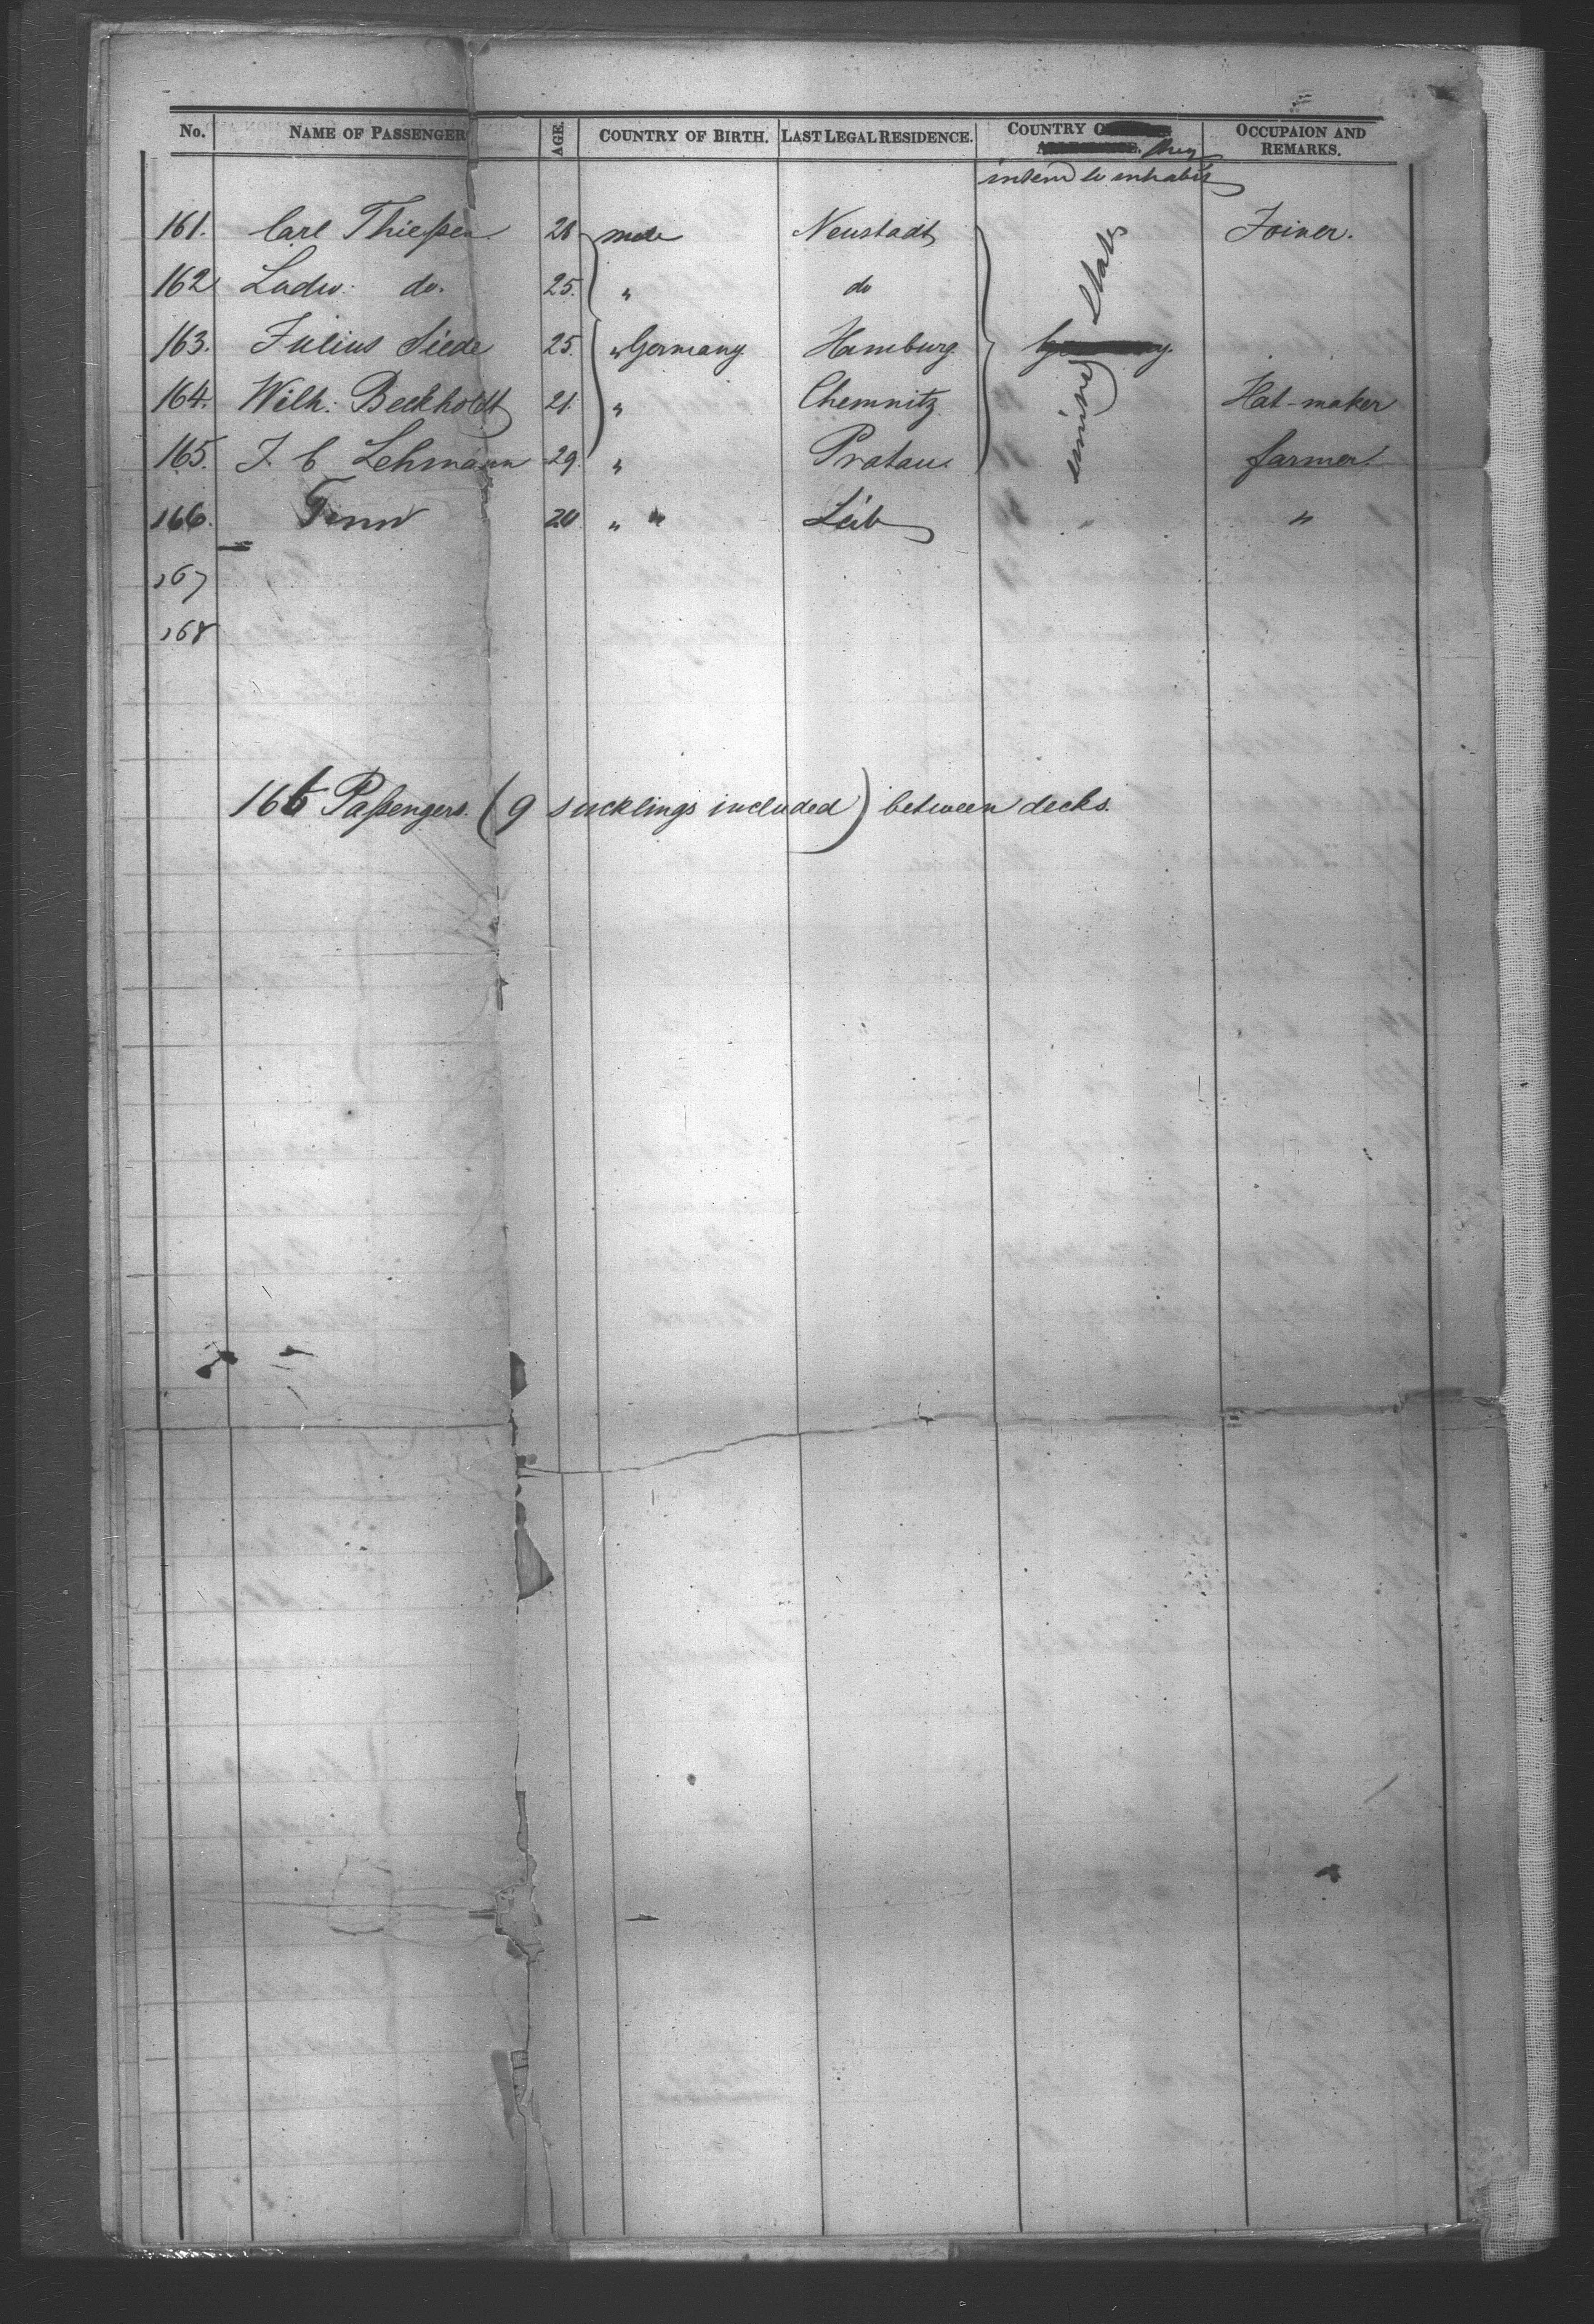 No. NAME OF PASSENGER AGE. COUNTRY OF BIRTH. LAST LEGAL RESIDENCE. COUNTRY they OCCUPAION AND REMARKS.
intend to inhabit
161. Carl Thießen 28 male Neustadt Joiner.
162 Ludw: do. 25. " do
163. Julius Siede 25. " Germany Hamburg
164. Wilh: Beckholdt 21. " Chemnitz Hat-maker
165. J. C Lehmann 29. " Pratau farmer.
166. 20 " " Leib "
united States
167
168
166 Paßengers. (9 sucklings included) between decks.